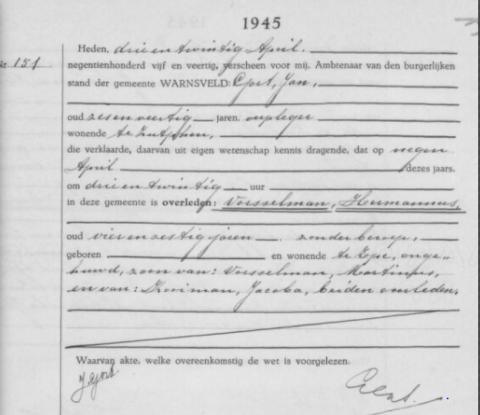 1945
151
Heden, drie en twintig April.
negentienhonderd vijf en veertig, verscheen voor mij. Ambtenaar van den burgerlijken
stand der gemeente WARNSVELD: Jan,
oud zes en veertig jaren. verpleger
wonende te Zutphen,
die verklaarde, daarvan uit eigen wetenschap kennis dragende, dat op negen
April dezes jaars.
om drie en twintig uur
in deze gemeente is overleden: Vorsselman, Hermannus,
oud vier en zestig jaren. zonder beroep,
geboren en wonende te Epe, onge-
huwd, zoon van: Vorsselman, Martinus,
en van: Kooiman, Jacoba, beiden overleden.
Waarvan akte. welke overeenkomstig de wet is voorgelezen.